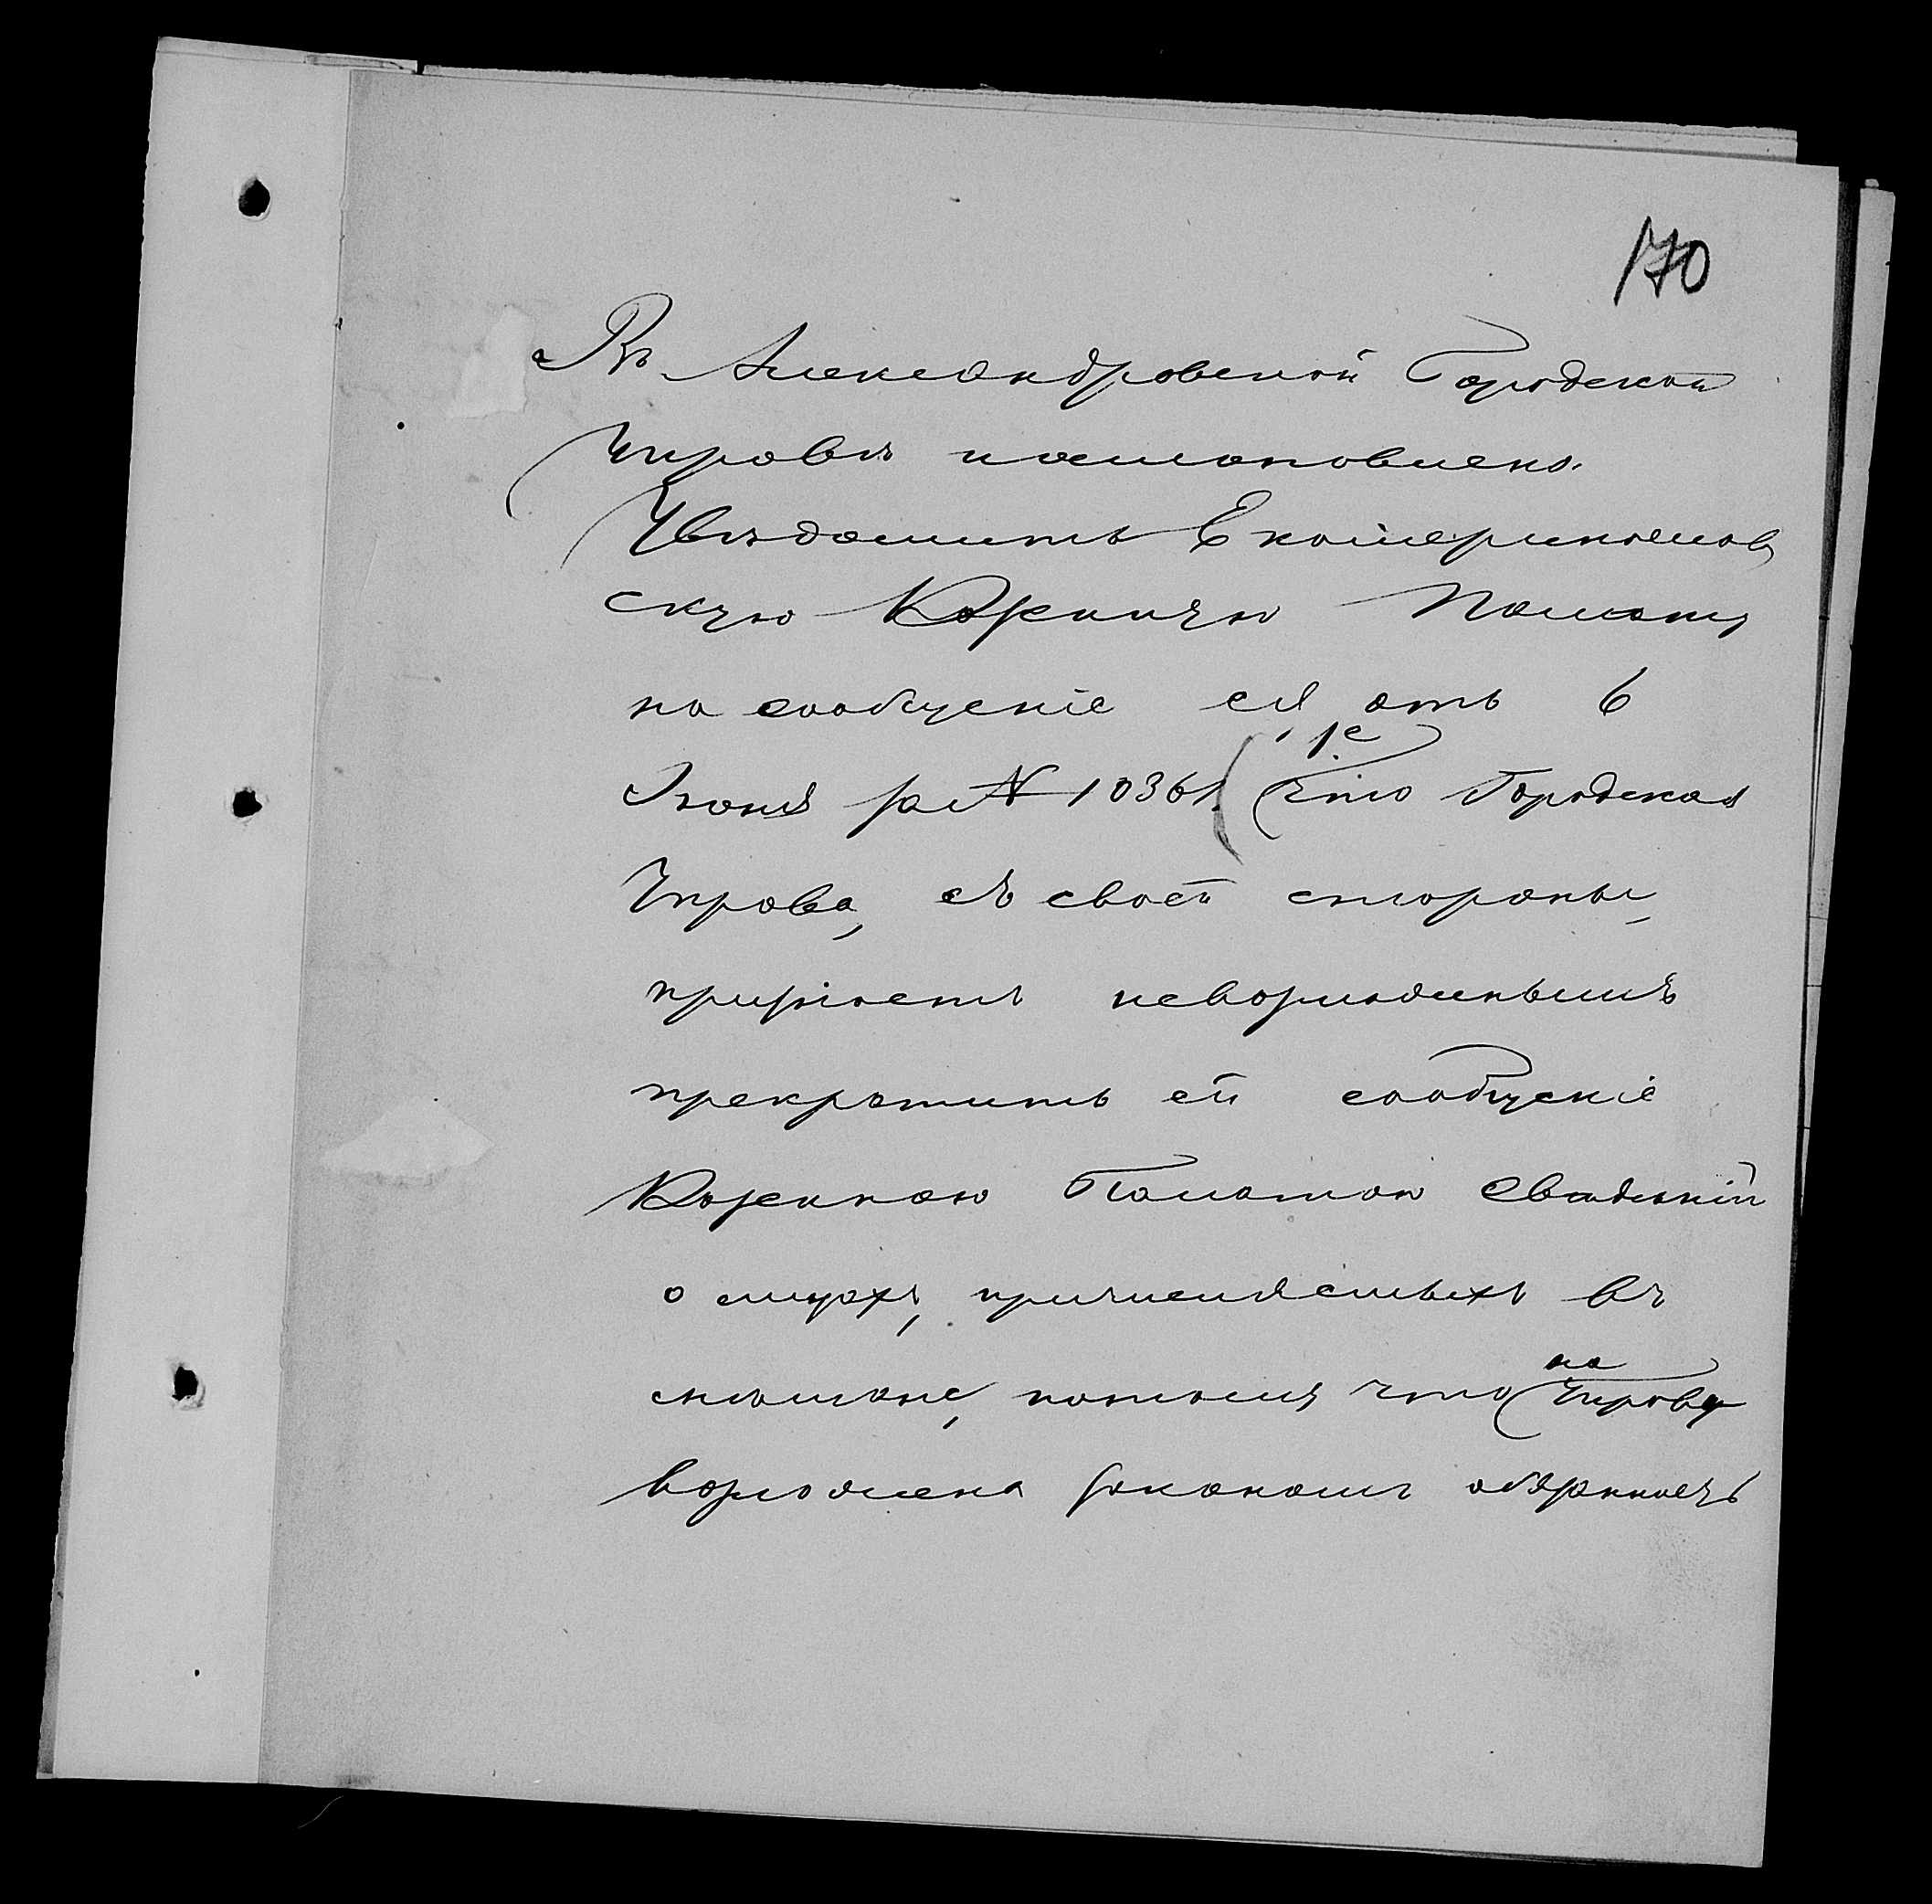 170
Въ Александровской Городской
Управѣ постановлено:
Увѣдомить Екатеринослав
скую Казенную Палату,
на сообщеніе ея отъ 6
Іюня за № 10361. 1е
что Городская
Управа, съ своей стороны,
признаетъ невозможнымъ
прекратить ей сообщеніе
Казенною Палатою свѣдѣній
о лицахъ, причисляемыхъ въ
мѣщане, потому что на Управу
возложена закономъ обязанность